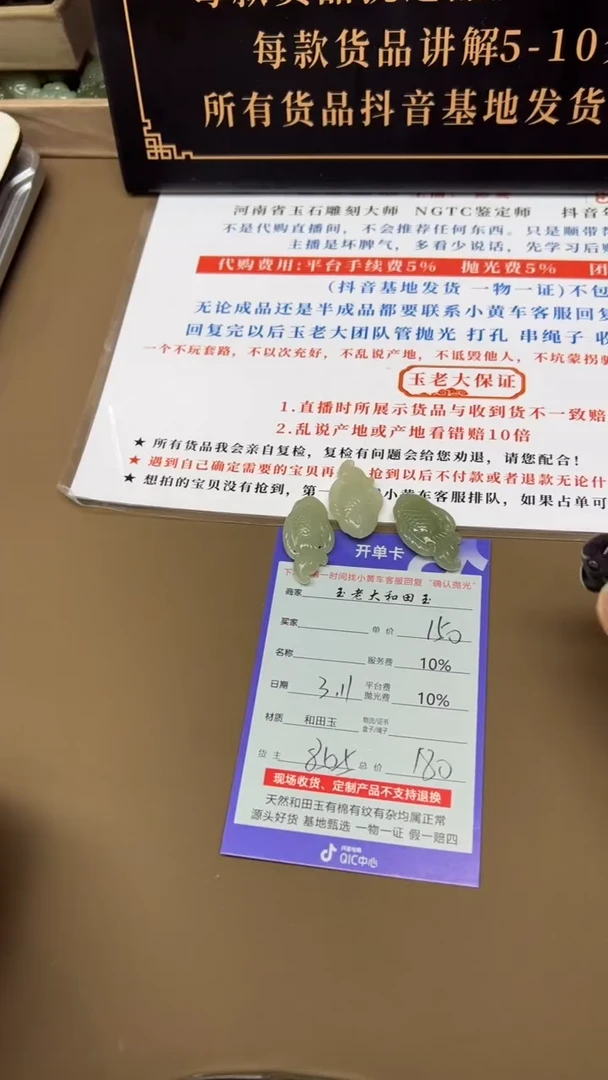 每款货品讲解5-10
所有货品抖音基地发货
河南省玉石雕刻大师 NGTC鉴定师 抖音
不是代购直播间，不会推荐任何东西。只是顺带
主播是坏脾气，多看少说话，先学习后
代购费用:平台手续费5% 抛光费5% 团
(抖音基地发货 一物一证)不包
无论成品还是半成品都要联系小黄车客服回复
回复完以后玉老大团队管抛光 打孔 串绳子 收
一个不玩套路，不以次充好，不乱说产地，不诋毁他人，不坑蒙拐骗
玉老大保证
1.直播时所展示货品与收到货不一致赔
2.乱说产地或产地看错赔10倍
★ 所有货品我会亲自复检，复检有问题会给您劝退，请您配合！
★ 遇到自己确定需要的宝贝再 抢到以后不付款或者退款无论什
★ 想拍的宝贝没有抢到，第一 小黄车客服排队，如果占单可
开单卡
一时间找小黄车客服回复“确认抛光”
商家 玉老大和田玉
买家 单价 150
名称 服务费 10%
日期 3.11 平台费 抛光费 10%
材质 和田玉 物流/证书 盒子/绳子
货主 总价 180
现场收货、定制产品不支持退换
天然和田玉有棉有纹有杂均属正常
源头好货 基地甄选 一物一证 假一赔四
抖音电商
QIC中心